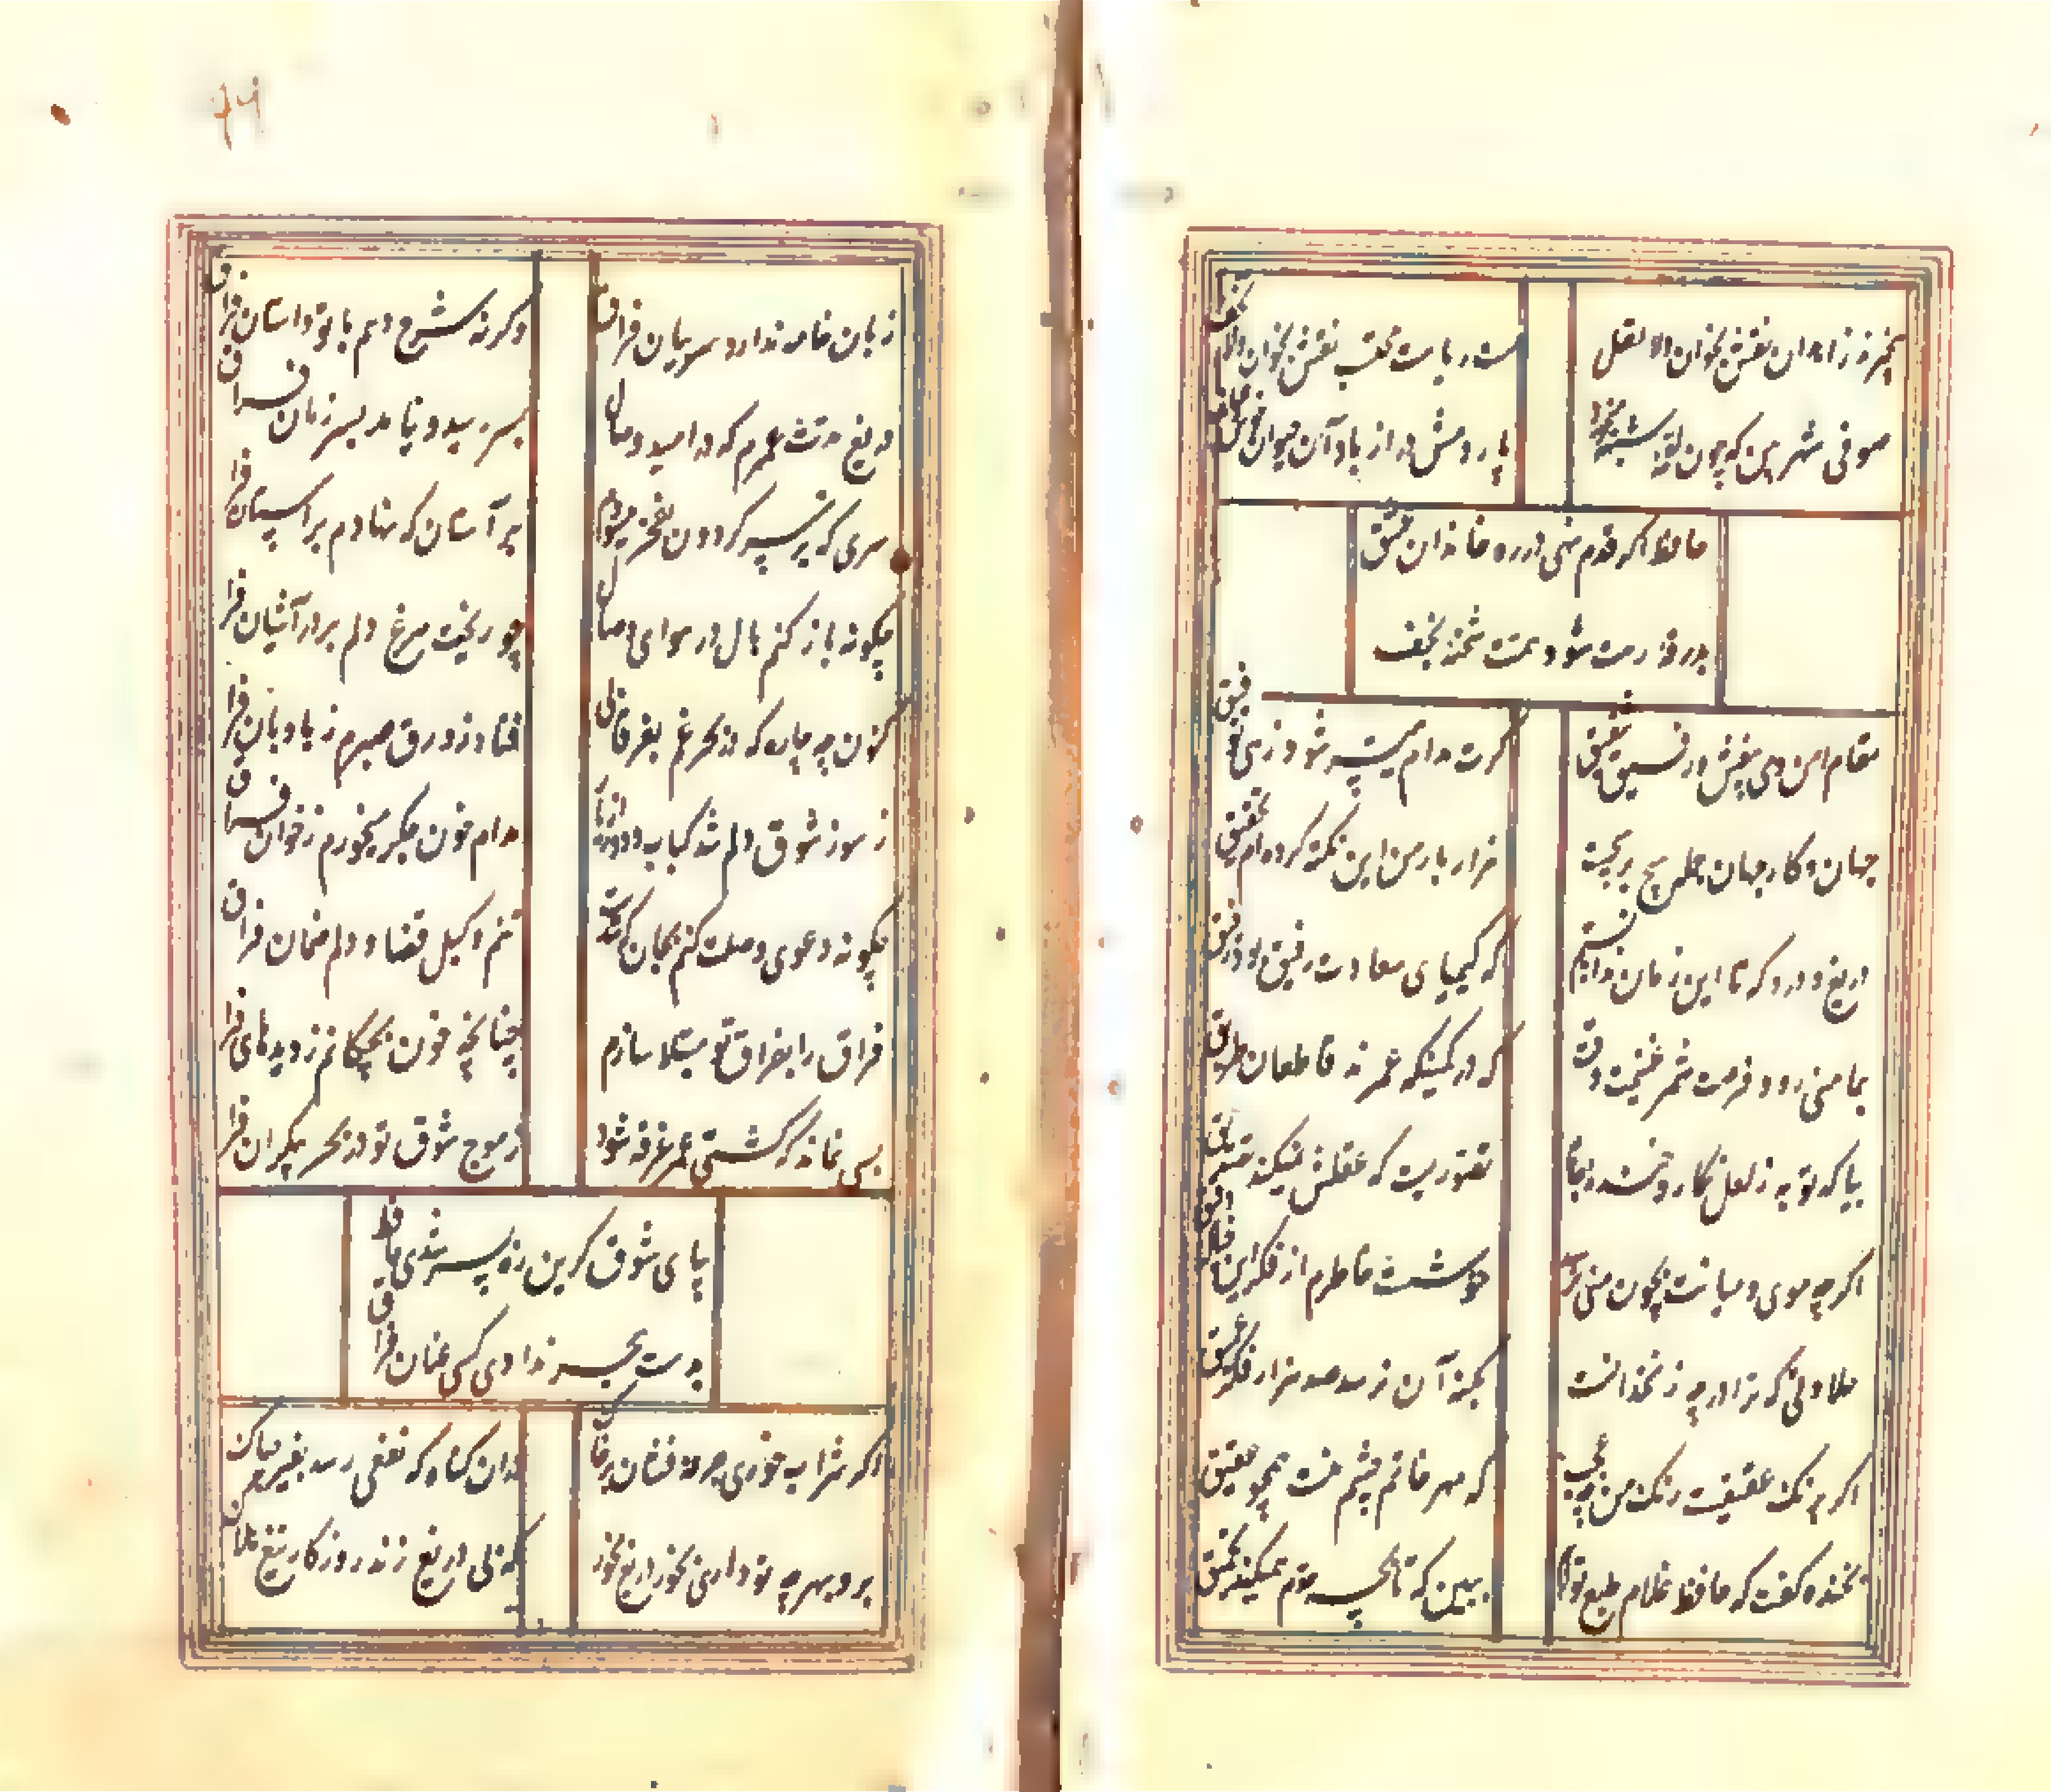 بیخبرند زاهدان نقش بخوان و لا تقل
مست ریاست محتسب نقش بخوان و لا تخف
صوفی شهر بین که چون لقمه شبهه میخورد
پاردمش دراز باد آن حیوان خوش علف
حافظ اگر قدم زنی در ره خاندان عشق
بدرقه رهت شود همت شحنه نجف
مقام امن و می بیغش و رفیق شفیق
گرت مدام میسر شود زهی توفیق
جهان و کار جهان جمله هیچ بر هیچست
هزار بار من این نکته کرده ام تحقیق
دریغ و درد که تا این زمان ندانستم
که کیمیای سعادت رفیق بود رفیق
بمامنی رو و فرصت شمر غنیمت وقت
که در کمینگه عمرند قاطعان طریق
بیا که توبه ز لعل نگار و خنده جام
تصوریست که عقلش نمیکند تصدیق
اگر چه موی میانت بچون منی نرسد
خوشست خاطرم از فکر این خیال دقیق
حلاوتی که ترا در چه زنخدانست
بکنه آن نرسد صد هزار فکر عمیق
اگر برنگ عقیقست رنگ من چه عجب
که مهر خاتم چشم منست همچو عقیق
بخنده گفت که حافظ غلام طبع توام
ببین که تا بچه حدم همیکند تحمیق
۹۹
زبان خامه ندارد سر بیان فراق
وگرنه شرح دهم با تو داستان فراق
دریغ مدت عمرم که در امید وصال
بسر رسید و نیامد بسر زمان فراق
سری که بر سر گردون بفخر میسودم
بر آستان که نهادم بر آستان فراق
چگونه باز کنم بال در هوای وصال
چو ریخت مرغ دلم پر در آشیان فراق
کنون چه چاره که در بحر غم بغرقابی
فتاد زورق صبرم ز بادبان فراق
ز سوز شوق دلم شد کباب دور از یار
مدام خون جگر میخورم ز خوان فراق
چگونه دعوی وصلت کنم بجان که شدست
تنم وکیل قضا و دلم ضمان فراق
فراق را بفراق تو مبتلا سازم
چنانچه خون بچکانم ز دیدهای فراق
بسی نماند که کشتی عمر غرقه شود
ز موج شوق تو در بحر بیکران فراق
بپای شوق گر این ره بسر شدی حافظ
بدست هجر ندادی کسی عنان فراق
اگر شراب خوری جرعه فشان بر خاک
از آن گناه که نفعی رسد بغیر چه باک
برو بهر چه تو داری بخور دریغ مخور
که بی دریغ زند روزگار تیغ هلاک